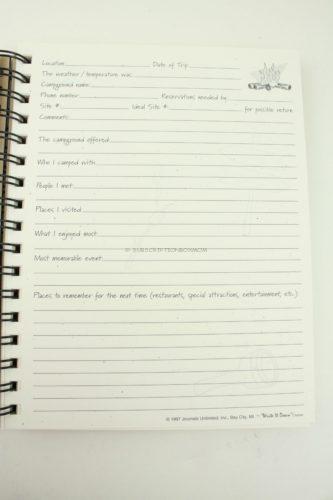 Location: Date of Trip:
The weather / temperature was:
Campground name:
Phone number: Reservations needed by
Site #: Ideal Site #: for possible return
Comments:
The campground offered
Who I camped with
People I met
Places I visited
What I enjoyed most
© SUBSCRIPTIONBOXMOM
Most memorable event
Places to remember for the next time (restaurants, special attractions, entertainment, etc.)
© 1997 Journals Unlimited, Inc., Bay City, MI ~ "Write It Down"